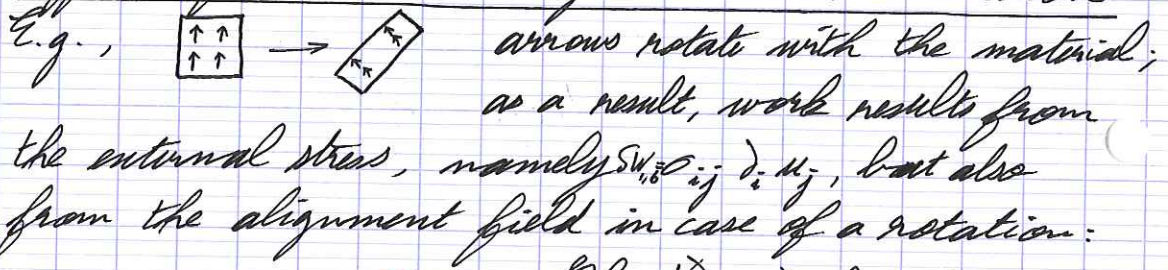 E.g., → arrows rotate with the material;
as a result, work results from
the external stress, namely δw = σij ∂i uj, but also
from the alignment field in case of a rotation: